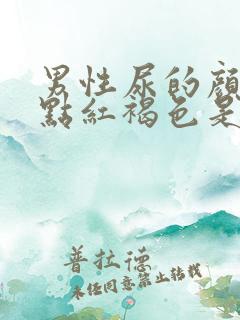 男性尿的顏
點紅褐色是
普拉德
未经同意禁止转载